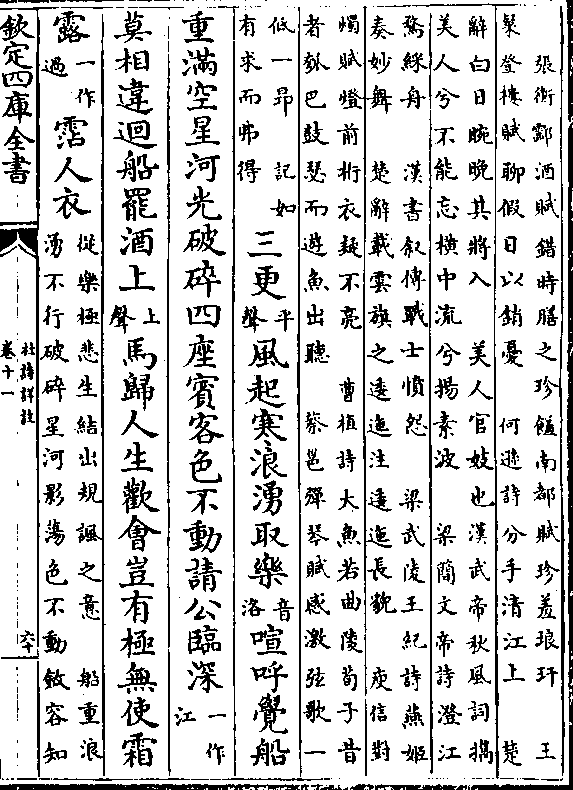 張衡酃酒賦錯時膳之珍饈南都賦珍羞琅玕 王
粲登樓賦聊假日以銷憂 何遜詩分手清江上 楚
辭白日晼晚其將入 美人官妓也漢武帝秋風詞攜
美人兮不能忘橫中流兮揚素波 梁簡文帝詩澄江
騖綵舟 漢書叙傳戰士憤怨 梁武陵王紀詩燕姬
奏妙舞 楚辭載雲旗之逶迤注逶迤長貌 庾信對
燭賦燈前桁衣疑不亮 曹植詩大魚若曲陵荀子昔
者瓠巴鼓瑟而遊魚出聽 蔡邕彈琴賦感激弦歌一
低一昂 記如
有求而弗得
三更平聲風起寒浪湧取樂音洛喧呼覺船
重滿空星河光破碎四座賓客色不動請公臨深一作江
莫相違迴船罷酒上上聲馬歸人生歡會豈有極無使霜
露一作過霑人衣
從樂極悲生結出規諷之意 船重浪
湧不行破碎星河影蕩色不動斂容知
欽定四庫全書
杜詩詳註
卷十一
六十